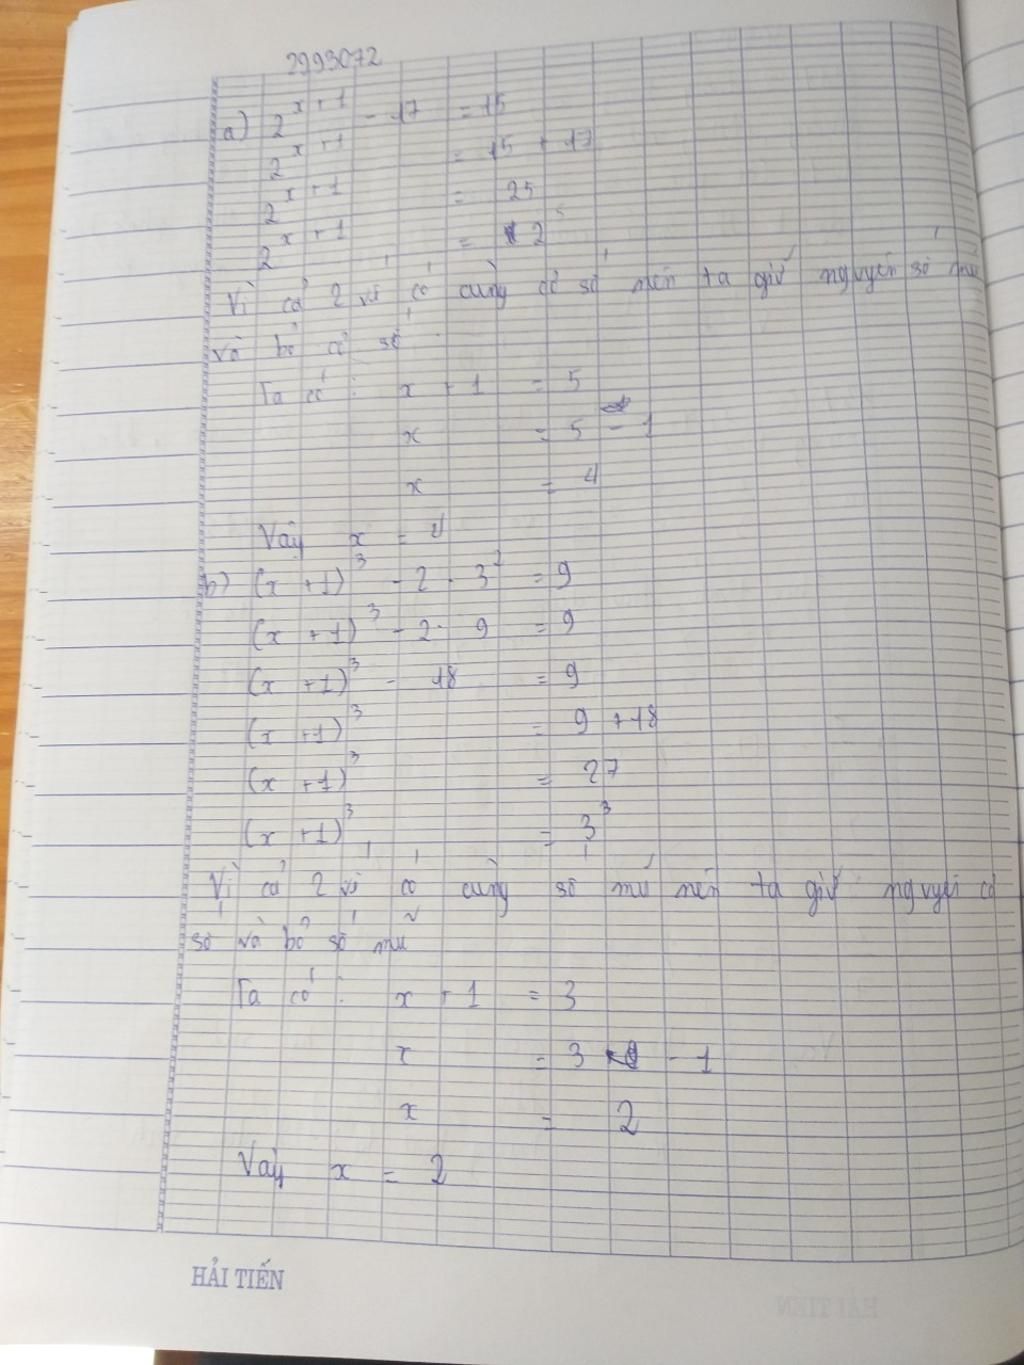 2993072
a) 2^{x+1} - 17 = 15
2^{x+1} = 15 + 17
2^{x+1} = 25
2^{x+1} = 2^5
Vì cả 2 vế có cùng cơ số nên ta giữ nguyên số mũ
và bỏ cơ số
Ta có : x + 1 = 5
x = 5 - 1
x = 4
Vậy x = 4
b) (x + 1)^3 - 2 . 3^2 = 9
(x + 1)^3 - 2 . 9 = 9
(x + 1)^3 - 18 = 9
(x + 1)^3 = 9 + 18
(x + 1)^3 = 27
(x + 1)^3 = 3^3
Vì cả 2 vế có cùng số mũ nên ta giữ nguyên cơ
số và bỏ số mũ
Ta có : x + 1 = 3
x = 3 - 1
x = 2
Vậy x = 2
HẢI TIẾN